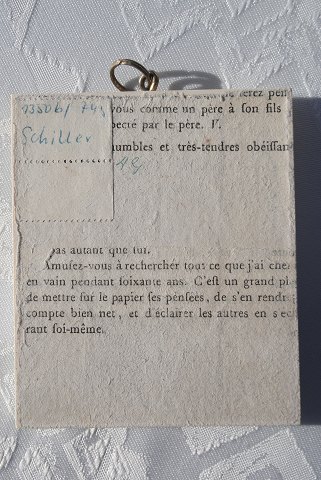 1350 b/
Schiller
vous comme un père à son fils
pecté par le père. V.
umbles et très-tendres obéissan
pas autant que lui.
Amusez-vous à rechercher tout ce que j'ai cher
en vain pendant soixante ans. C'est un grand pl
de mettre sur le papier ses pensées, de s'en rendr
compte bien net, et d'éclairer les autres en s'écl
rant soi-même.